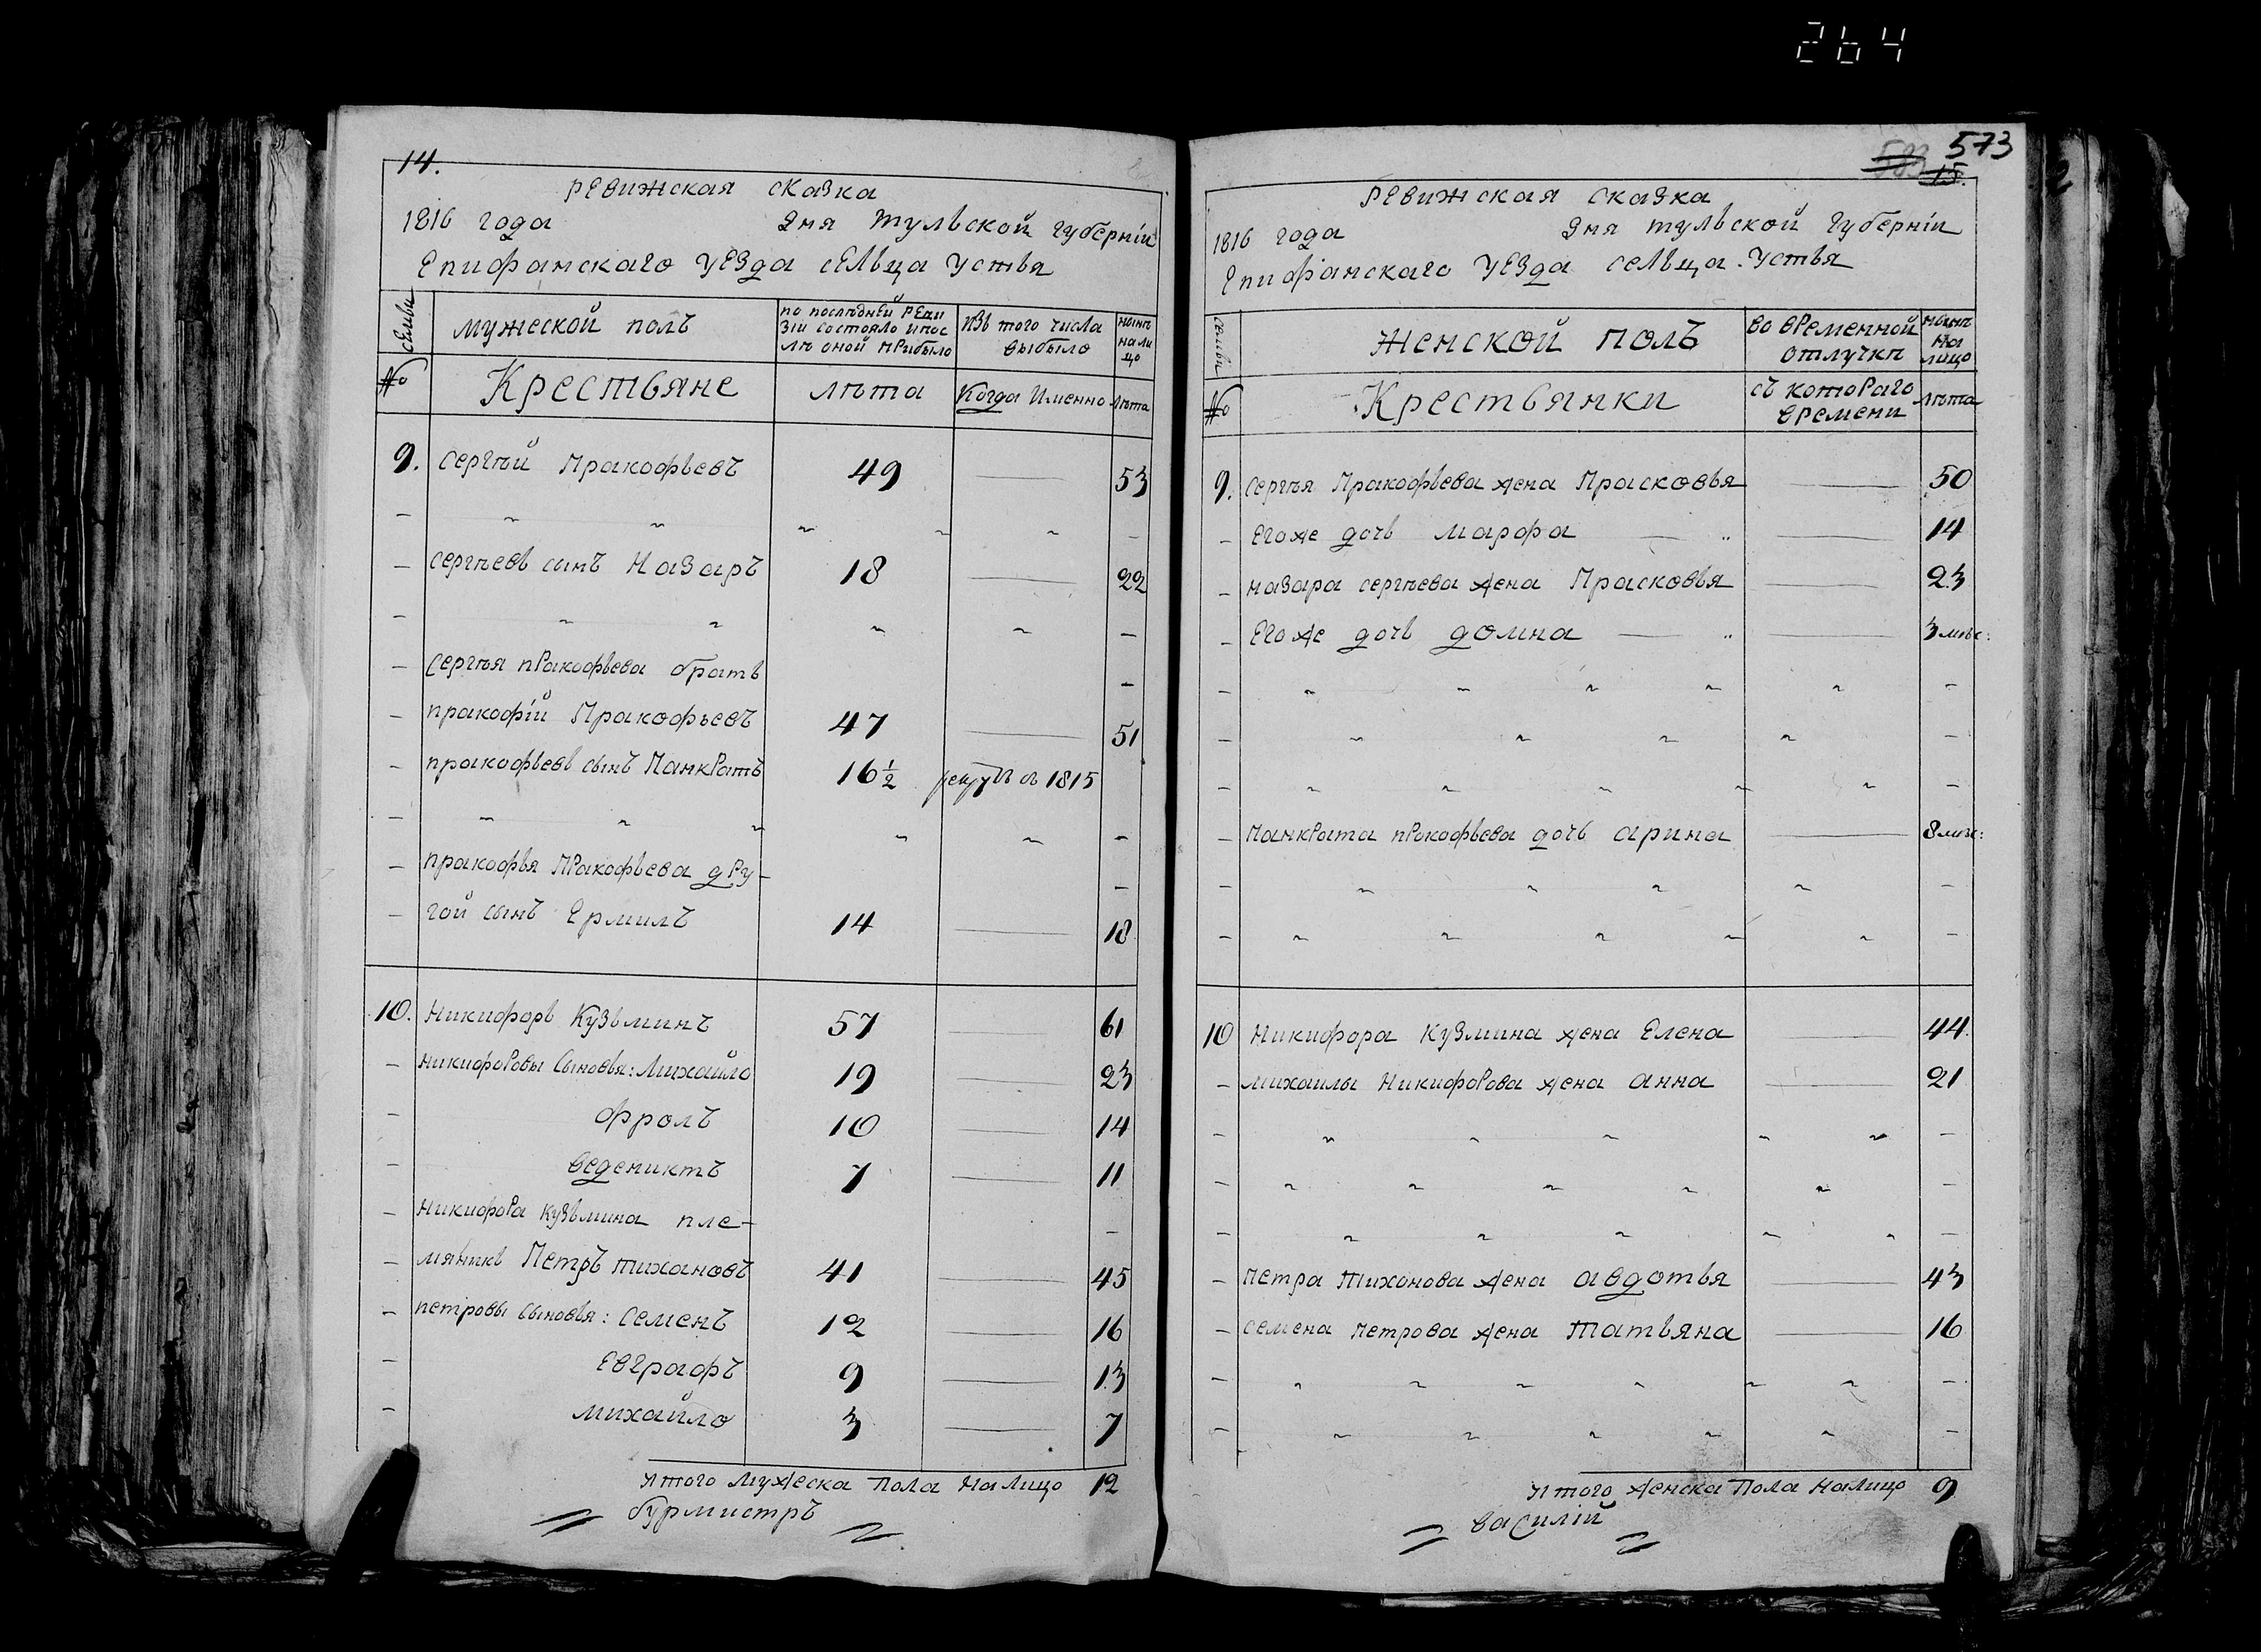 264
14.
ревижская сказка
1816 года дня тульской губерніи
Епифанскаго уезда сельца устья
семьи
мужеской полъ
по послѣдней реви
зіи состояло ипос
лѣ оной прибыло
изъ того числа
выбыло
нынѣ
на ли
цо
№
Крестьяне
лѣта
когда Именно
лѣта
9. сергѣй Пракофьевъ 49 53
сергѣевъ сынъ Назаръ 18 22
сергѣя пракофьева братъ
пракофій Пракофьевъ 47 51
пракофьевъ сынъ Панкратъ 16 1/2 рекрутъ въ 1815
пракофья Пракофьева дру-
гой сынъ Ермилъ 14 18
10. Никифоръ Кузьминъ 57 61
никифоровы Сыновья: Михайло 19 23
фролъ 10 14
веденикть 7 11
Никифора кузьмина пле-
мяникъ Петръ тихановъ 41 45
петровы сыновья: Семенъ 12 16
Евграфъ 9 13
михайло 3 7
итого мужеска пола на лицо 12
бурмистръ
573
583
15.
ревижская сказка
1816 года дня тульской губерніи
Епифанскаго уезда сельца устья
семьи
женской полъ
во временной
отлучкѣ
нынѣ
на
лицо
№
Крестьянки
съ котораго
времени
лѣта
9. сергѣя Пракофьева жена Прасковья 50
Егоже дочь марфа 14
назара сергѣева жена Прасковья 23
Егоже дочь домна 3 мѣс:
панкрата пракофьева дочь арина 8 мѣс:
10 никифора кузмина жена Елена 44
михаилы Никифорова жена анна 21
петра тихонова жена авдотья 43
семена петрова жена татьяна 16
итого женска пола налицо 9
василій